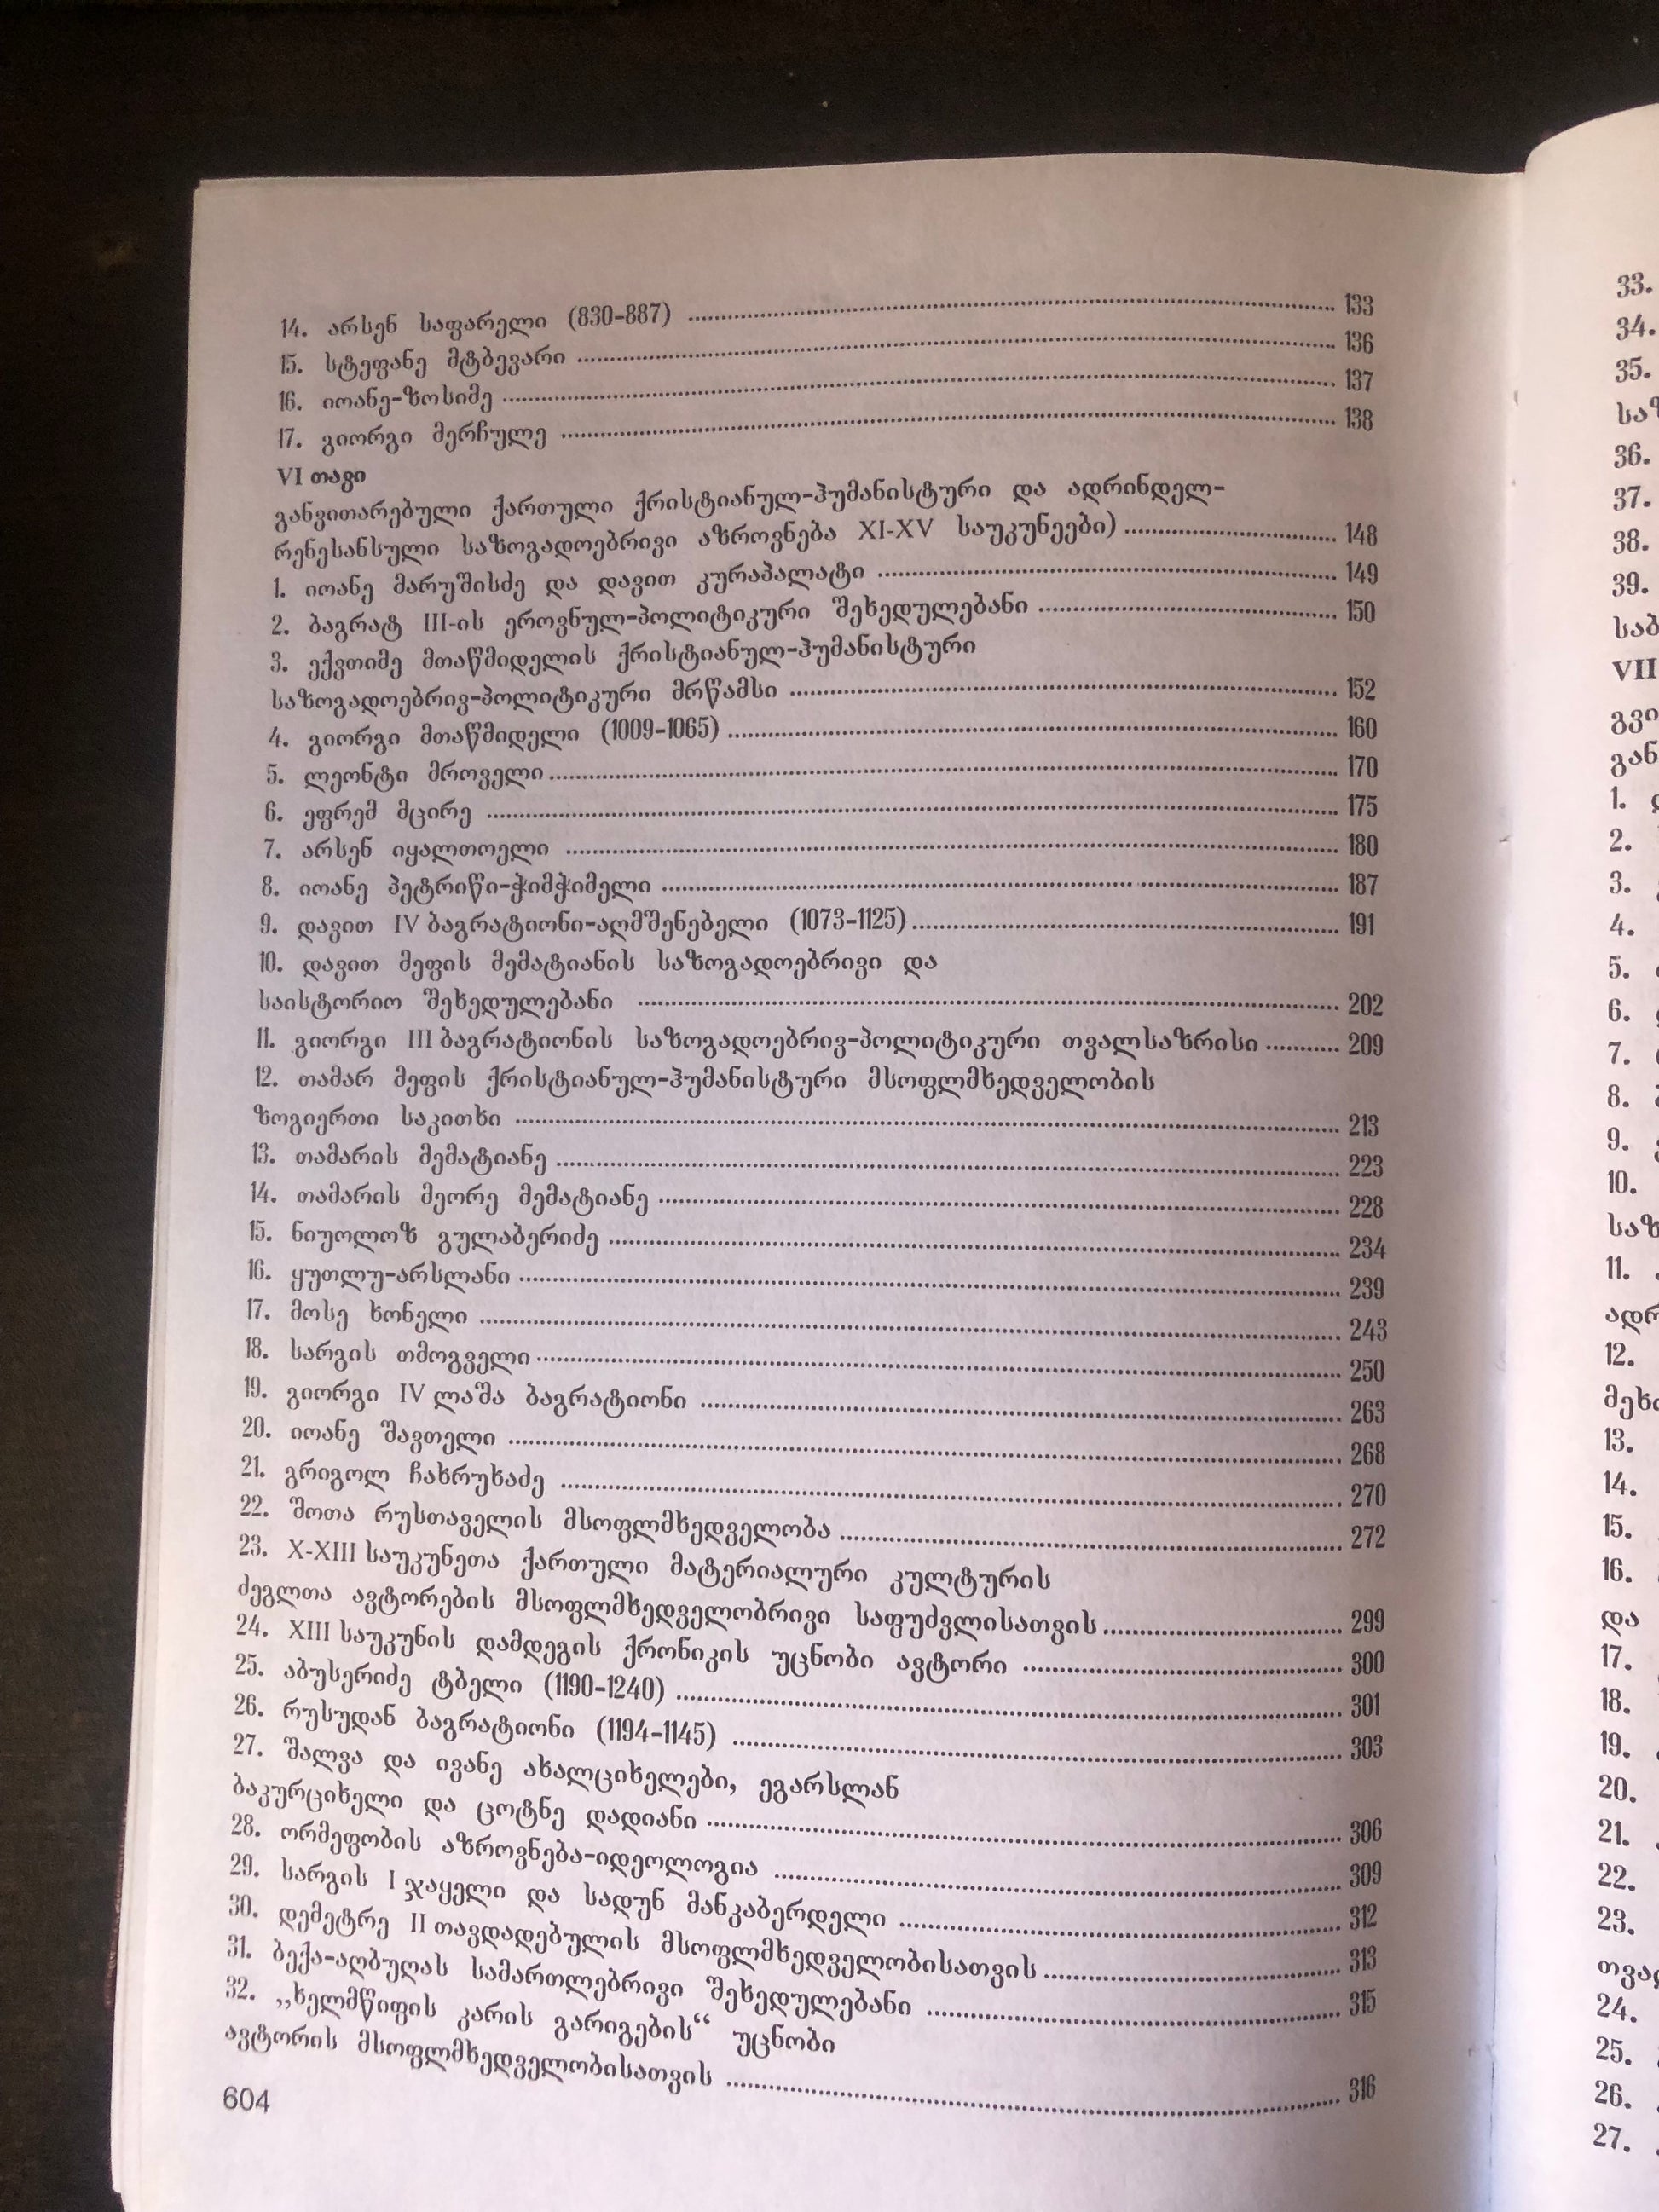 14. არსენ საფარელი (830-887) ........ 133
15. სტეფანე მტბევარი ........ 136
16. იოანე-ზოსიმე ........ 137
17. გიორგი მერჩულე ........ 138
VI თავი
განვითარებული ქართული ქრისტიანულ-ჰუმანისტური და ადრინდელ-
რენესანსული საზოგადოებრივი აზროვნება XI-XV საუკუნეები) ........ 148
1. იოანე მარუშისძე და დავით კურაპალატი ........ 149
2. ბაგრატ III-ის ეროვნულ-პოლიტიკური შეხედულებანი ........ 150
3. ექვთიმე მთაწმიდელის ქრისტიანულ-ჰუმანისტური
საზოგადოებრივ-პოლიტიკური მრწამსი ........ 152
4. გიორგი მთაწმიდელი (1009-1065) ........ 160
5. ლეონტი მროველი ........ 170
6. ეფრემ მცირე ........ 175
7. არსენ იყალთოელი ........ 180
8. იოანე პეტრიწი-ჭიმჭიმელი ........ 187
9. დავით IV ბაგრატიონი-აღმშენებელი (1073-1125) ........ 191
10. დავით მეფის მემატიანის საზოგადოებრივი და
საისტორიო შეხედულებანი ........ 202
11. გიორგი III ბაგრატიონის საზოგადოებრივ-პოლიტიკური თვალსაზრისი ........ 209
12. თამარ მეფის ქრისტიანულ-ჰუმანისტური მსოფლმხედველობის
ზოგიერთი საკითხი ........ 213
13. თამარის მემატიანე ........ 223
14. თამარის მეორე მემატიანე ........ 228
15. ნიუოლოზ გულაბერიძე ........ 234
16. ყუთლუ-არსლანი ........ 239
17. მოსე ხონელი ........ 243
18. სარგის თმოგველი ........ 250
19. გიორგი IV ლაშა ბაგრატიონი ........ 263
20. იოანე შავთელი ........ 268
21. გრიგოლ ჩახრუხაძე ........ 270
22. შოთა რუსთაველის მსოფლმხედველობა ........ 272
23. X-XIII საუკუნეთა ქართული მატერიალური კულტურის
ძეგლთა ავტორების მსოფლმხედველობრივი საფუძვლისათვის ........ 299
24. XIII საუკუნის დამდეგის ქრონიკის უცნობი ავტორი ........ 300
25. აბუსერიძე ტბელი (1190-1240) ........ 301
26. რუსუდან ბაგრატიონი (1194-1145) ........ 303
27. შალვა და ივანე ახალციხელები, ეგარსლან
ბაკურციხელი და ცოტნე დადიანი ........ 306
28. ორმეფობის აზროვნება-იდეოლოგია ........ 309
29. სარგის I ჯაყელი და სადუნ მანკაბერდელი ........ 312
30. დემეტრე II თავდადებულის მსოფლმხედველობისათვის ........ 313
31. ბექა-აღბუღას სამართლებრივი შეხედულებანი ........ 315
32. „ხელმწიფის კარის გარიგების“ უცნობი
ავტორის მსოფლმხედველობისათვის ........ 316
604
33.
34.
35.
36.
37.
38.
39.
VII
1.
2.
3.
4.
5.
6.
7.
8.
9.
10.
11.
12.
13.
14.
15.
16.
და
17.
18.
19.
20.
21.
22.
23.
24.
25.
26.
27.